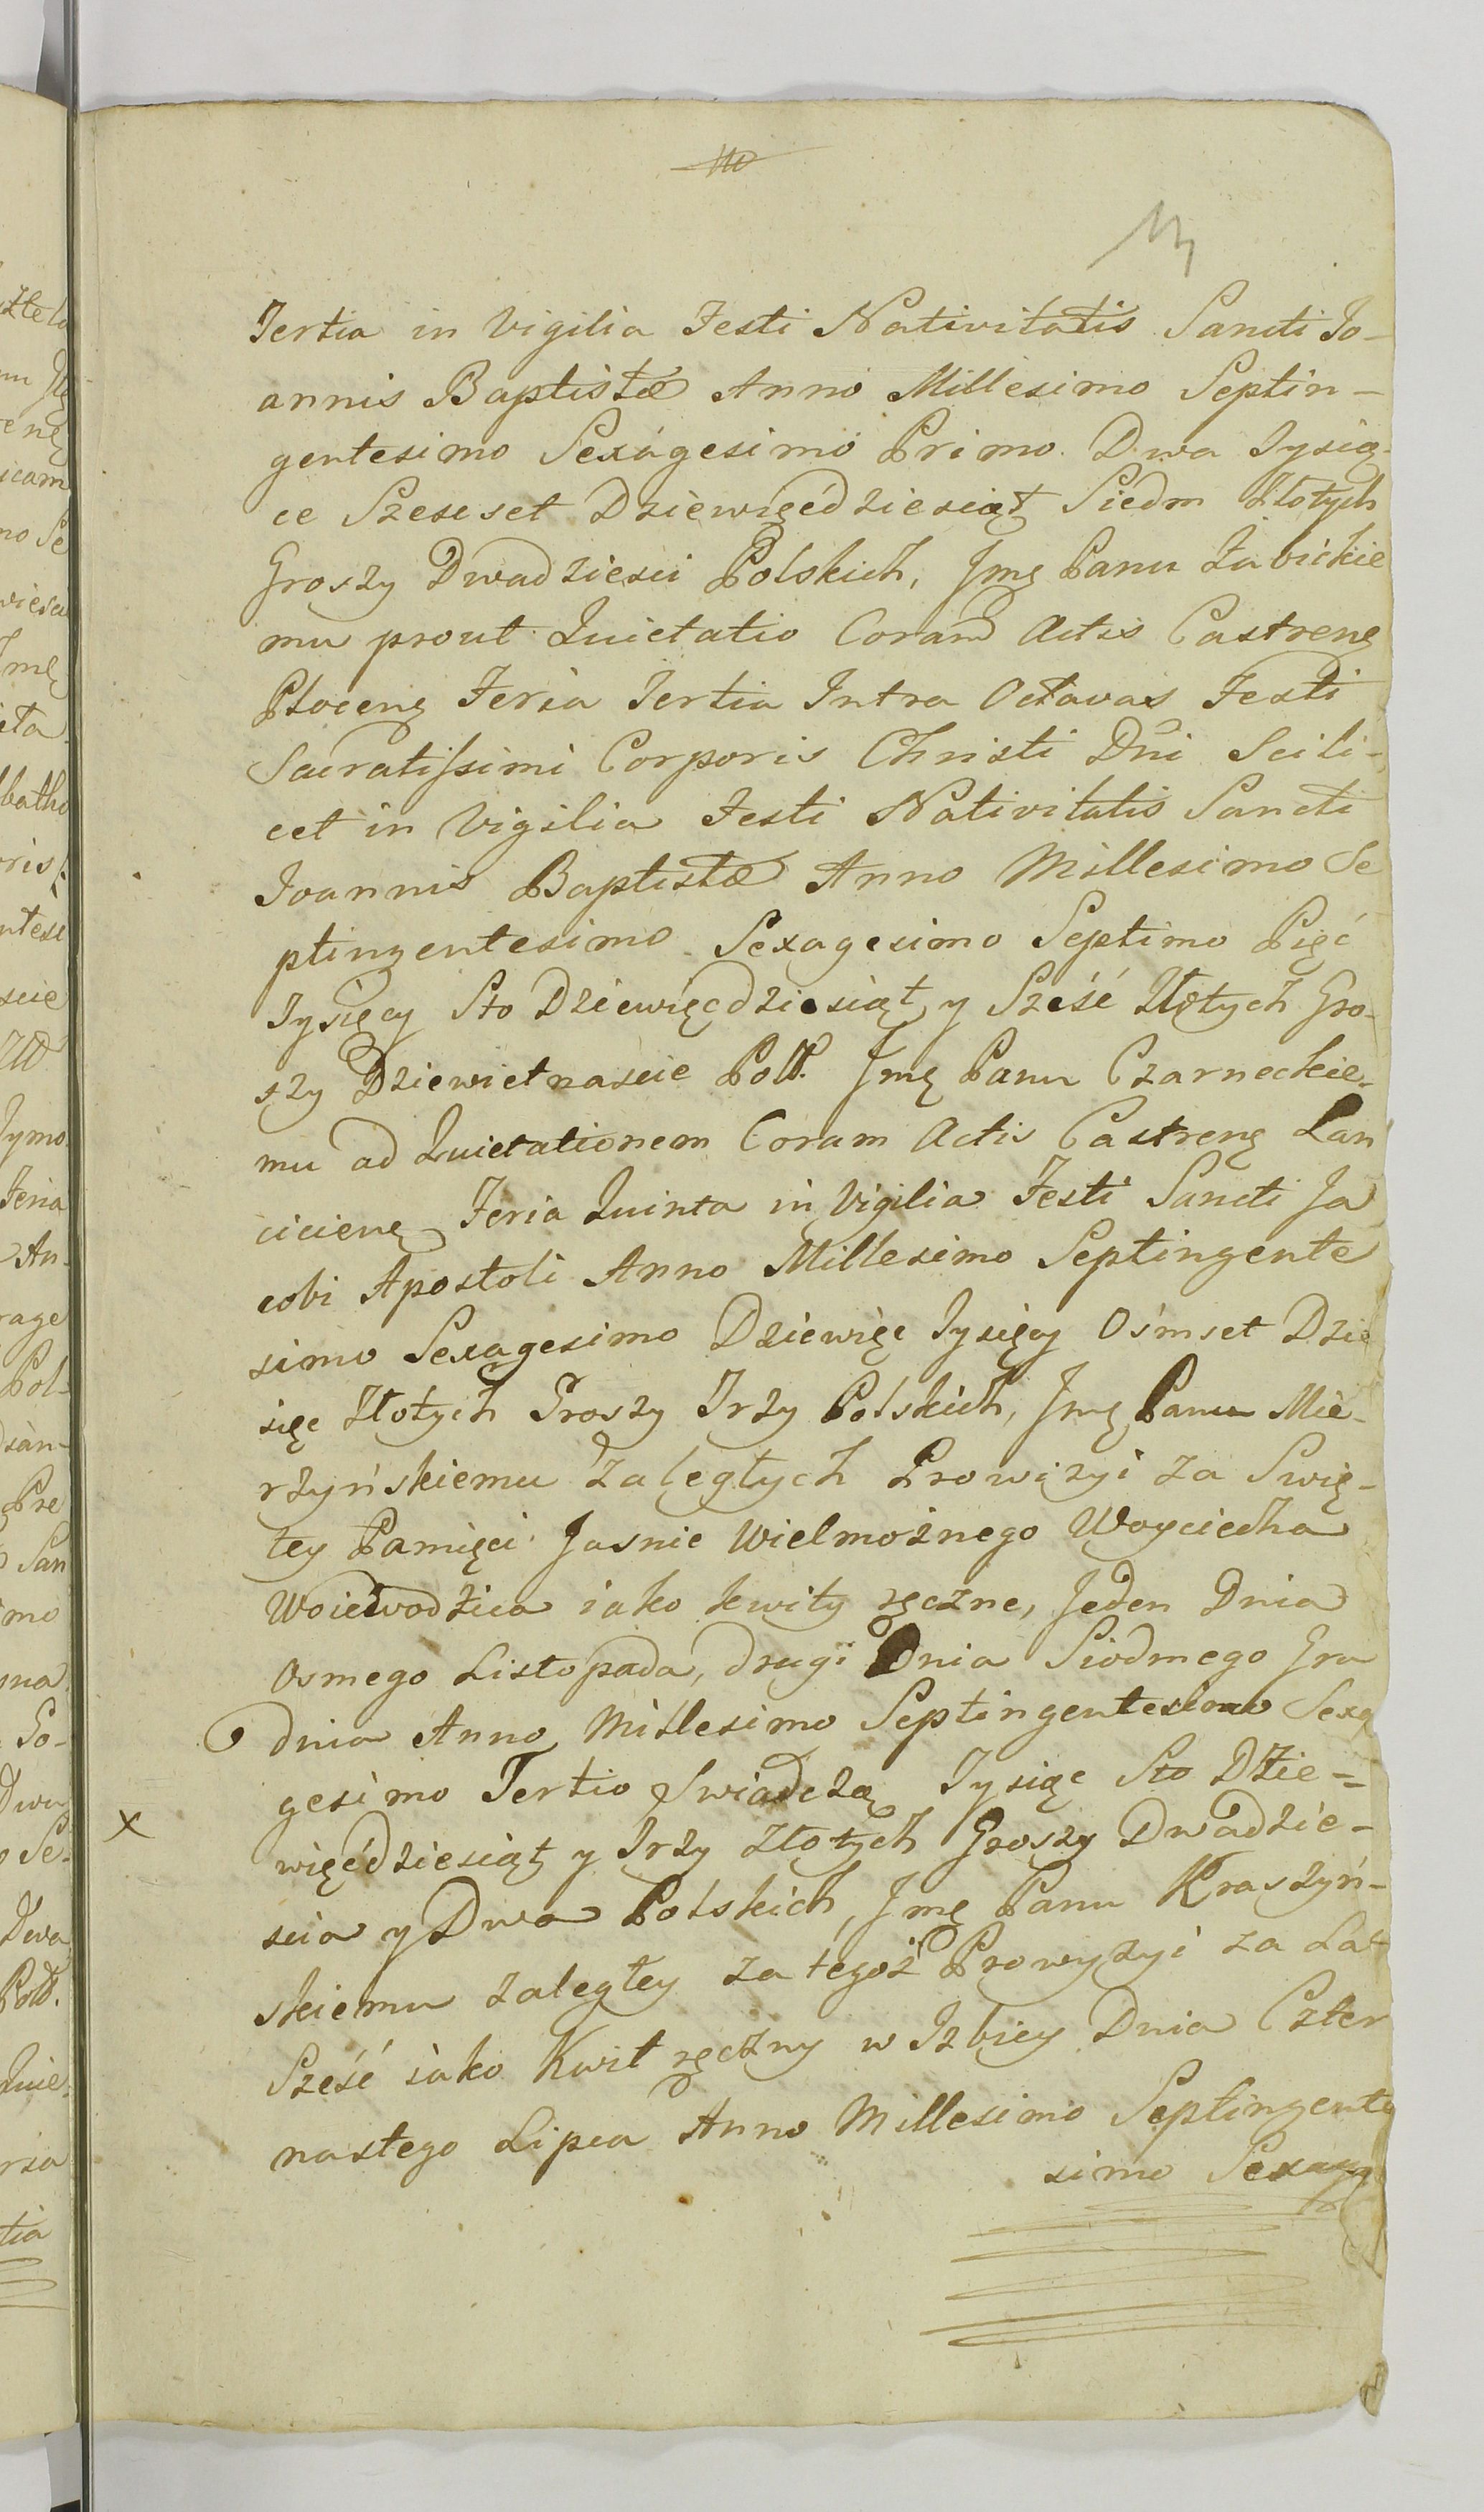 Tertia in Vigilia Festi Nativitatis Sancti Jo-
annis Baptistæ Anno Millesimo Septin-
gentesimo Sexagesimo Primo Dwa Tysią-
ce Szescset Dziewięćdziesiąt Siedm Złotych
Groszy Dwadziesci Polskich, Jmę Panu Żabickie
mu prout Quietatio Coram Actis Castrenę
Płocenę Feria Tertia Intra Octavas Festi
Sacratissimi Corporis Christi Dñi Scili-
cet in Vigilia Festi Nativitatis Sancti
Joannis Baptistæ Anno Millesimo Se
ptingentesimo Sexagesimo Septimo Pięć
Tysięcy Sto Dziewięcdziesiąt y Sześć Złotych Gro-
szy Dziewietnascie Poll. Jmę Panu Czarneckie-
mu ad Quietationem Coram Actis Castrenę Lan
cicienę Feria Quinta in Vigilia Festi Sancti Ja
cobi Apostoli Anno Millesimo Septingente
simo Sexagesimo Dziewięc Tysięcy Ośmset Dzie
sięc Złotych Groszy Trzy Polskich, Jmę Panu Mie-
rzyńskiemu Zaległych Prowizyi za Swię-
tey Pamięci Jasnie Wielmożnego Woyciecha
Woiewodzica iako kwity ręczne, Jeden Dnia
Osmego Listopada, drugi Dnia Siodmego Gru
dnia Anno Millesimo Septingentesimo Sexa
gesimo Tertio Swiadczą Tysiąc Sto Dzie=
więćdziesiąt y Trzy Złotych Groszy Dwadzie-
scia y Dwa Polskich, Jmę Panu Kraszyń-
skiemu zaległey za tegoż Prowyzyi za Lat
Sześć iako Kwit ręczny w Izbicy Dnia Czter
nastego Lipca Anno Millesimo Septingente
simo Sexage